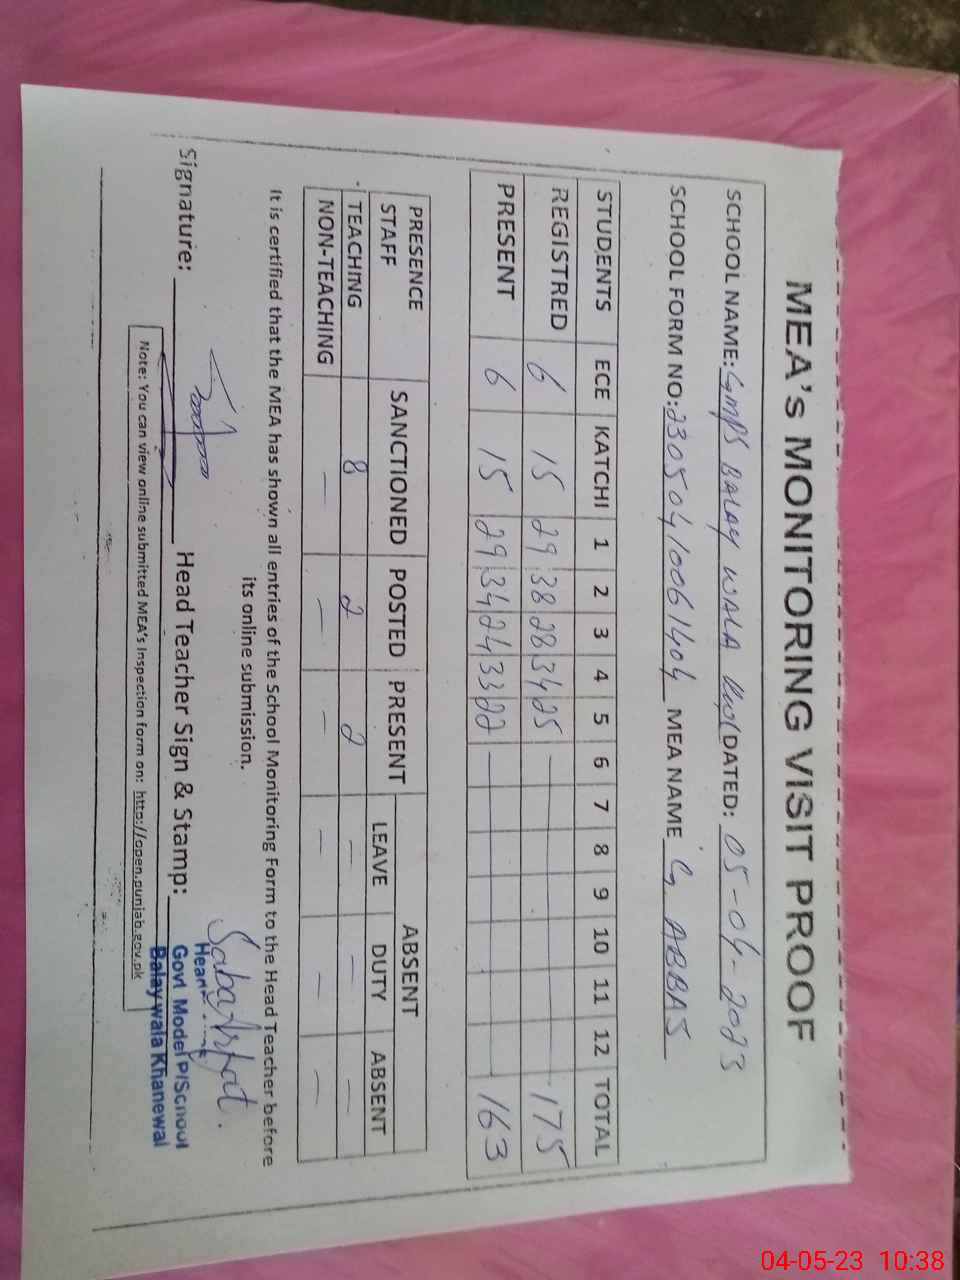 MEA's MONITORING VISIT PROOF
SCHOOL NAME: GMPS BALAY WALA DATED: 05-04-2023
SCHOOL FORM NO: 23050410061404 MEA NAME G. ABBAS
STUDENTS ECE KATCHI 1 2 3 4 5 6 7 8 9 10 11 12 TOTAL
REGISTRED 6 15 29 38 28 34 25 — 175
PRESENT 6 15 29 34 24 33 22 — 163
PRESENCE STAFF SANCTIONED POSTED PRESENT ABSENT
LEAVE DUTY ABSENT
TEACHING 8 2 2 — — —
NON-TEACHING — — — — — —
It is certified that the MEA has shown all entries of the School Monitoring Form to the Head Teacher before
its online submission.
Signature: Head Teacher Sign & Stamp:
Govt Model P/School
Balay wala Khanewal
Note: You can view online submitted MEA's Inspection form on: http://open.punjab.gov.pk
04-05-23 10:38